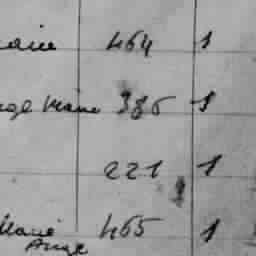 Marie 464 1
Ange Marie 386 1
221 1
Marie Ange 465 1